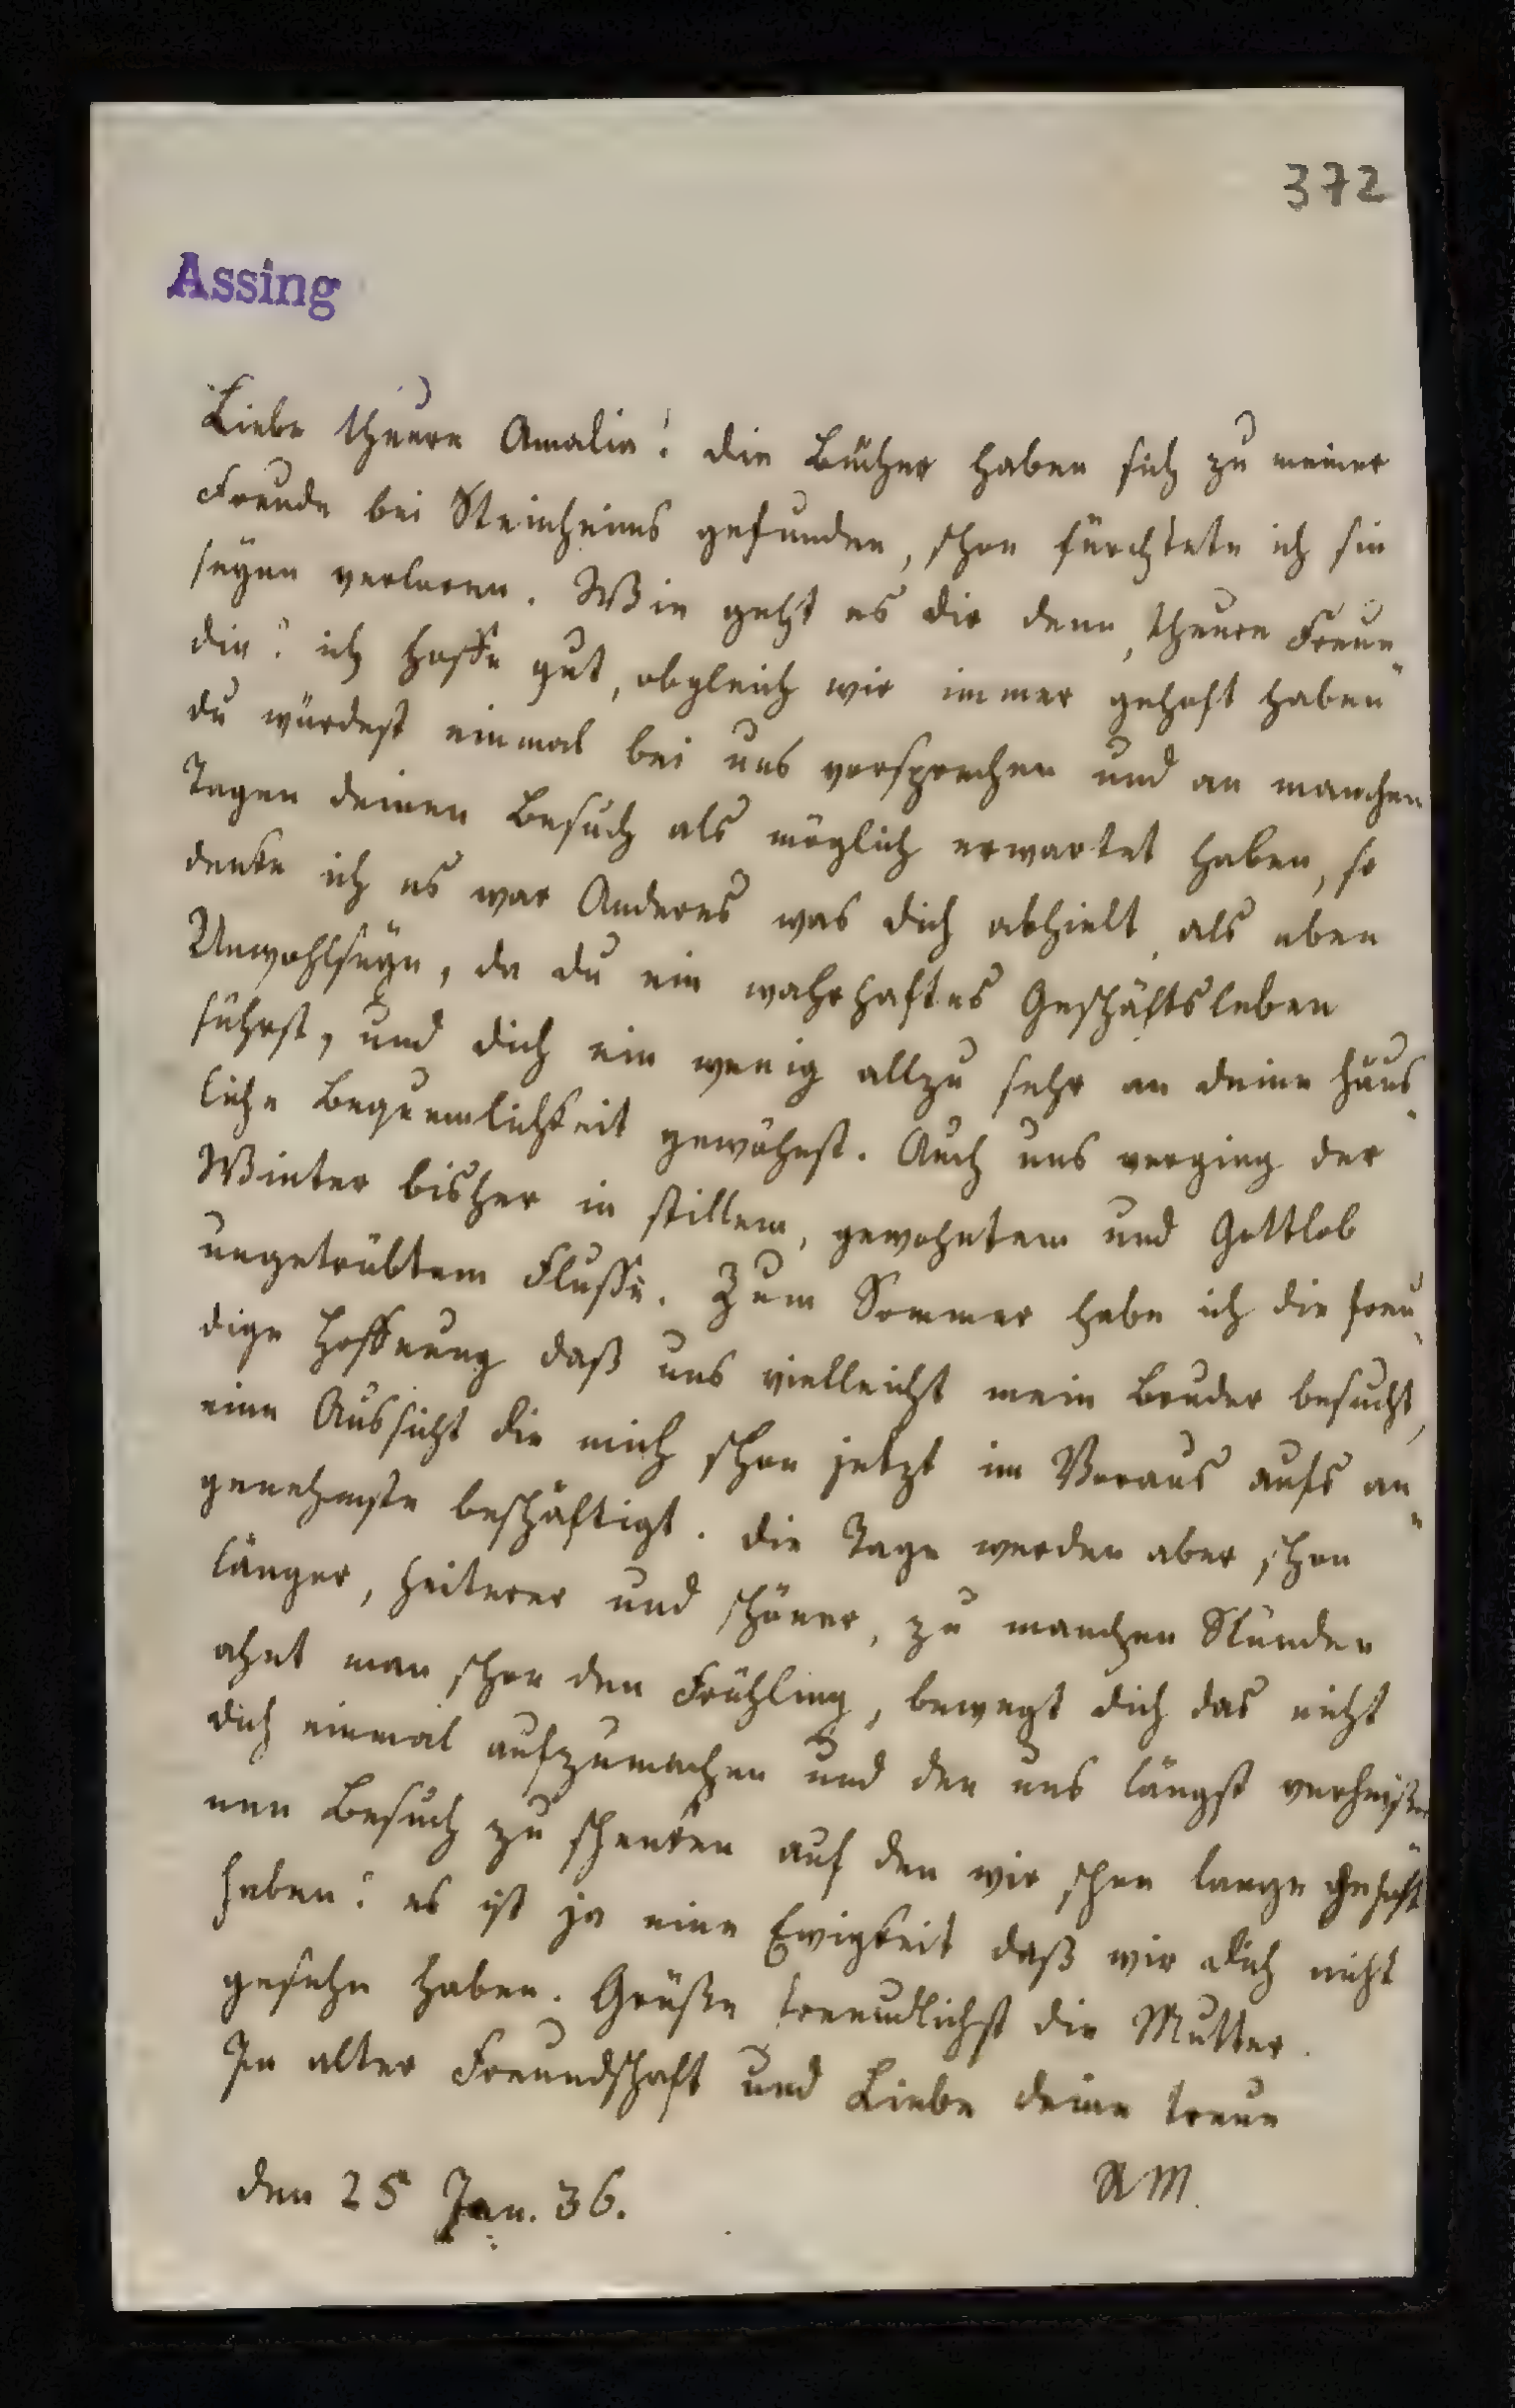 372
Assing
Liebe theure Amalia! die Bücher haben sich zu meiner
Freude bei Steinheims gefunden, schon fürchtete ich sie
seyen verloren. Wie geht es dir denn, theure Freun-
din? ich hoffe gut, obgleich wir immer gehoft haben
du würdest einmal bei uns vorsprechen und an manchen
Tagen deinen Besuch als möglich erwartet haben, so
denke ich es war Anderes was dich abhielt, als eben
Unwohlseyn, da du ein wahrhaftes Geschäftsleben
führst, und dich ein wenig allzu sehr an deine häus-
liche Bequemlichkeit gewöhnst. Auch uns verging der
Winter bisher in stillem, gewohntem und Gottlob
ungetrübtem Flusse. Zum Sommer habe ich die freu-
dige Hoffnung daß uns vielleicht mein Bruder besucht,
eine Aussicht die mich schon jetzt im Voraus aufs an-
genehmste beschäftigt. die Tage werden aber schon
länger, heiterer und schöner, zu manchen Stunden
ahnt man schon den Frühling, bewegt dich das nicht
dich einmal aufzumachen und den uns längst verheiße-
nen Besuch zu schenken auf den wir schon lange gehoft
haben? es ist ja eine Ewigkeit daß wir dich nicht
gesehn haben. Grüße freundlichst die Mutter.
In alter Freundschaft und Liebe deine treue
RM.
den 25 Jan. 36.